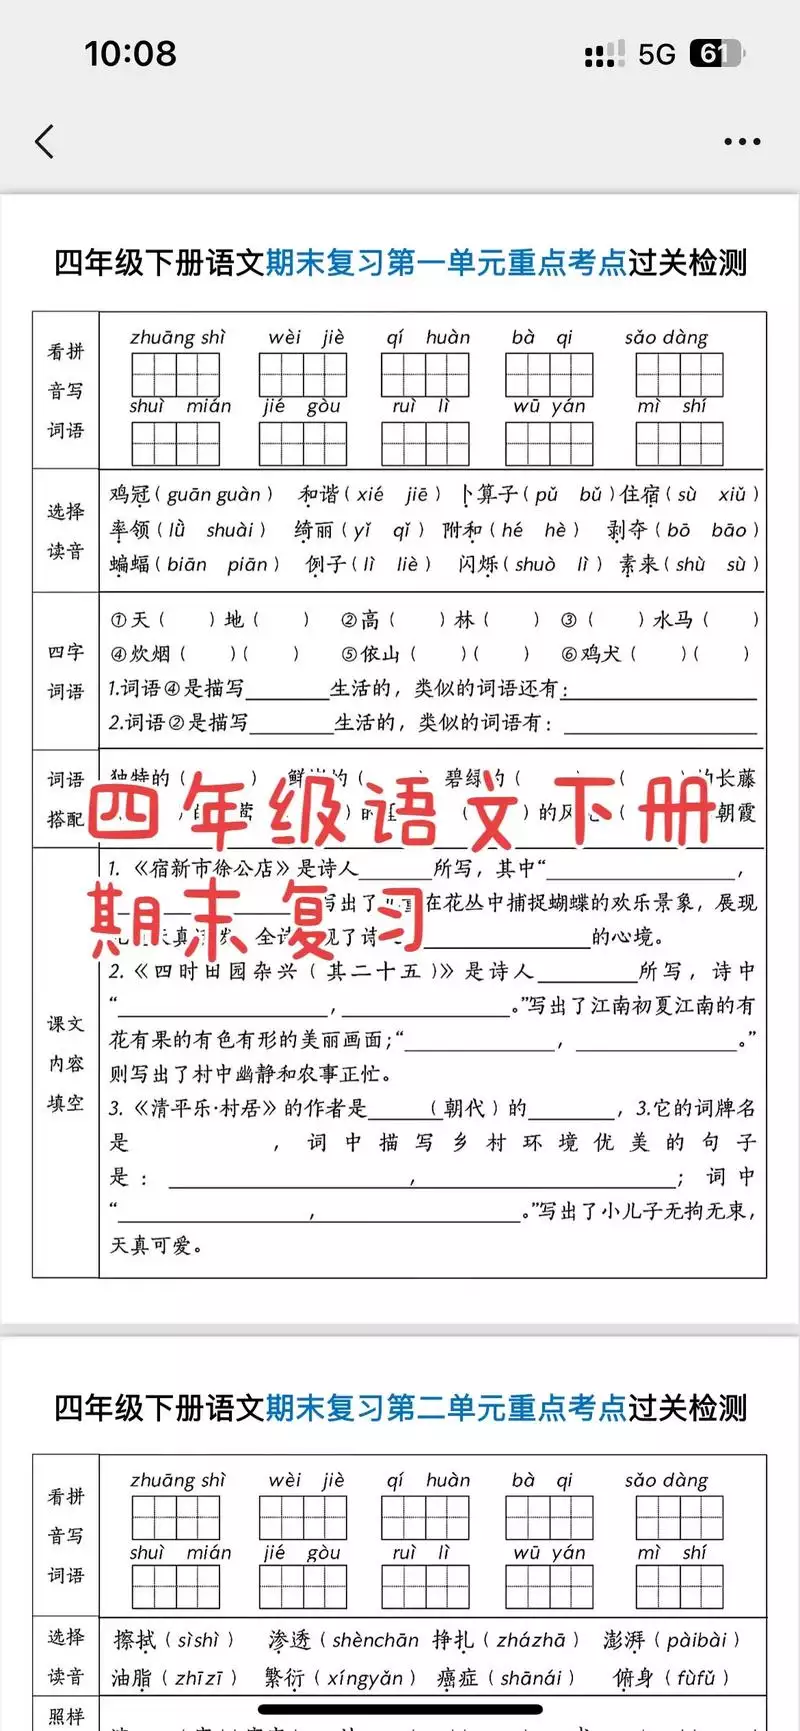 10:08
5G 61
四年级下册语文期末复习第一单元重点考点过关检测
看拼音写词语
zhuāng shì wèi jiè qí huàn bà qi sǎo dàng
shuì mián jié gòu ruì lì wū yán mì shí
选择读音
鸡冠(guān guàn) 和谐(xié jiē) 卜算子(pǔ bǔ)住宿(sù xiǔ)
率领(lǜ shuài) 绮丽(yǐ qǐ) 附和(hé hè) 剥夺(bō bāo)
蝙蝠(biān piān) 例子(lì liè) 闪烁(shuò lì) 素来(shù sù)
四字词语
①天( )地( ) ②高( )林( ) ③( )水马( )
④炊烟( )( ) ⑤依山( )( ) ⑥鸡犬( )( )
1.词语④是描写________生活的，类似的词语还有：________
2.词语②是描写________生活的，类似的词语有：________
词语搭配
独特的( ) 的( ) 碧绿的( ) ( )的长藤
的 ( )的风 朝霞
四年级语文下册
期末复习
课文内容填空
1.《宿新市徐公店》是诗人______所写，其中“________，
写出了儿童在花丛中捕捉蝴蝶的欢乐景象，展现
天真 全诗 现了诗 ________的心境。
2.《四时田园杂兴(其二十五)》是诗人______所写，诗中
“________，________。”写出了江南初夏江南的有
花有果的有色有形的美丽画面；“________，________。”
则写出了村中幽静和农事正忙。
3.《清平乐·村居》的作者是____(朝代)的______，3.它的词牌名
是 ，词中描写乡村环境优美的句子
是：________，________；词中
“________，________。”写出了小儿子无拘无束，
天真可爱。
四年级下册语文期末复习第二单元重点考点过关检测
看拼音写词语
zhuāng shì wèi jiè qí huàn bà qi sǎo dàng
shuì mián jié gòu ruì lì wū yán mì shí
选择读音
擦拭(sìshì) 渗透(shènchān 挣扎(zházhā) 澎湃(pàibài)
油脂(zhīzī) 繁衍(xíngyǎn) 癌症(shānái) 俯身(fùfǔ)
照样